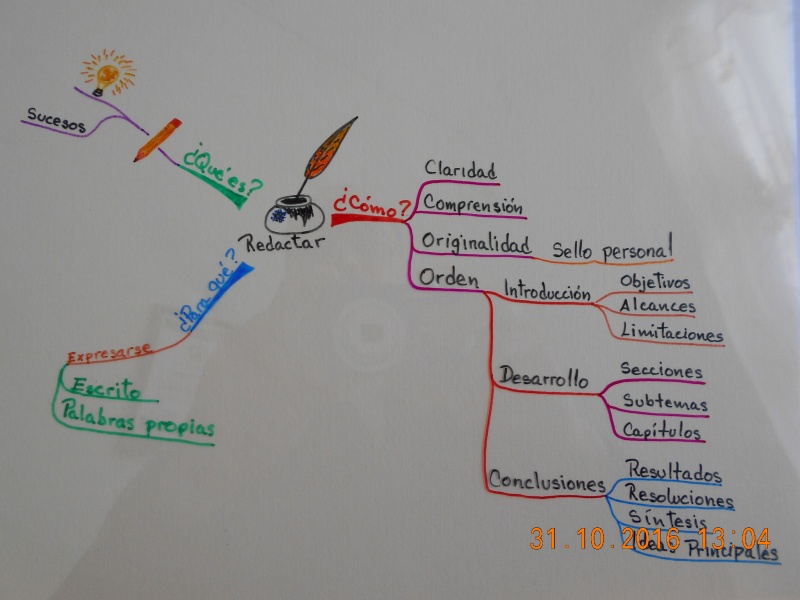 Sucesos
¿Qué es?
Redactar
¿Cómo?
Claridad
Comprensión
Originalidad
Sello personal
Orden
Introducción
Objetivos
Alcances
Limitaciones
Desarrollo
Secciones
Subtemas
Capítulos
Conclusiones
Resultados
Resoluciones
Síntesis
Ideas Principales
¿Para qué?
Expresarse
Escrito
Palabras propias
31.10.2016 13:04